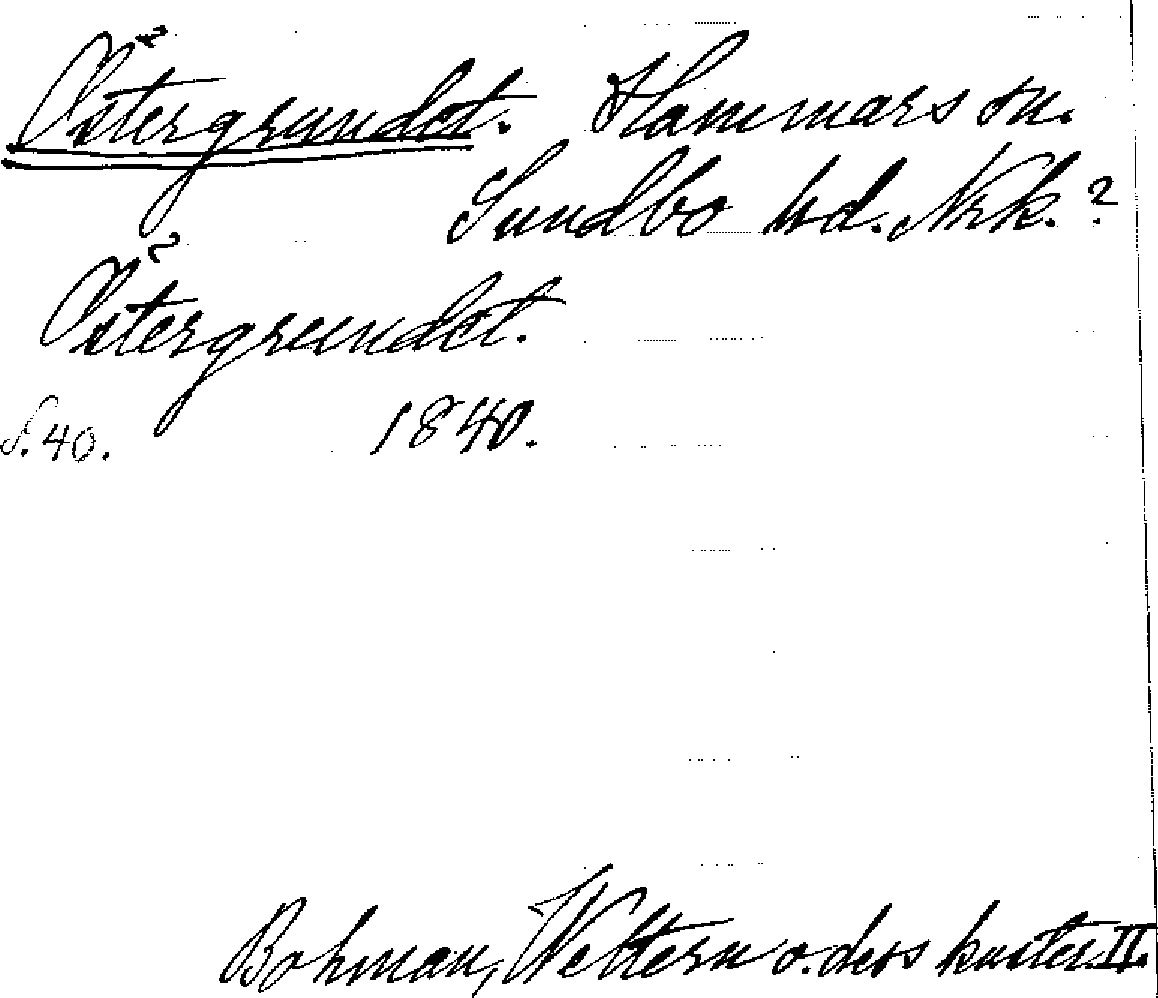 Östergrundet. Hammars sn.
Sundbo hd. Nrk.?
Östergrundet.
S. 40. 1840.
Bohman, Wettern o. dess kuster II.